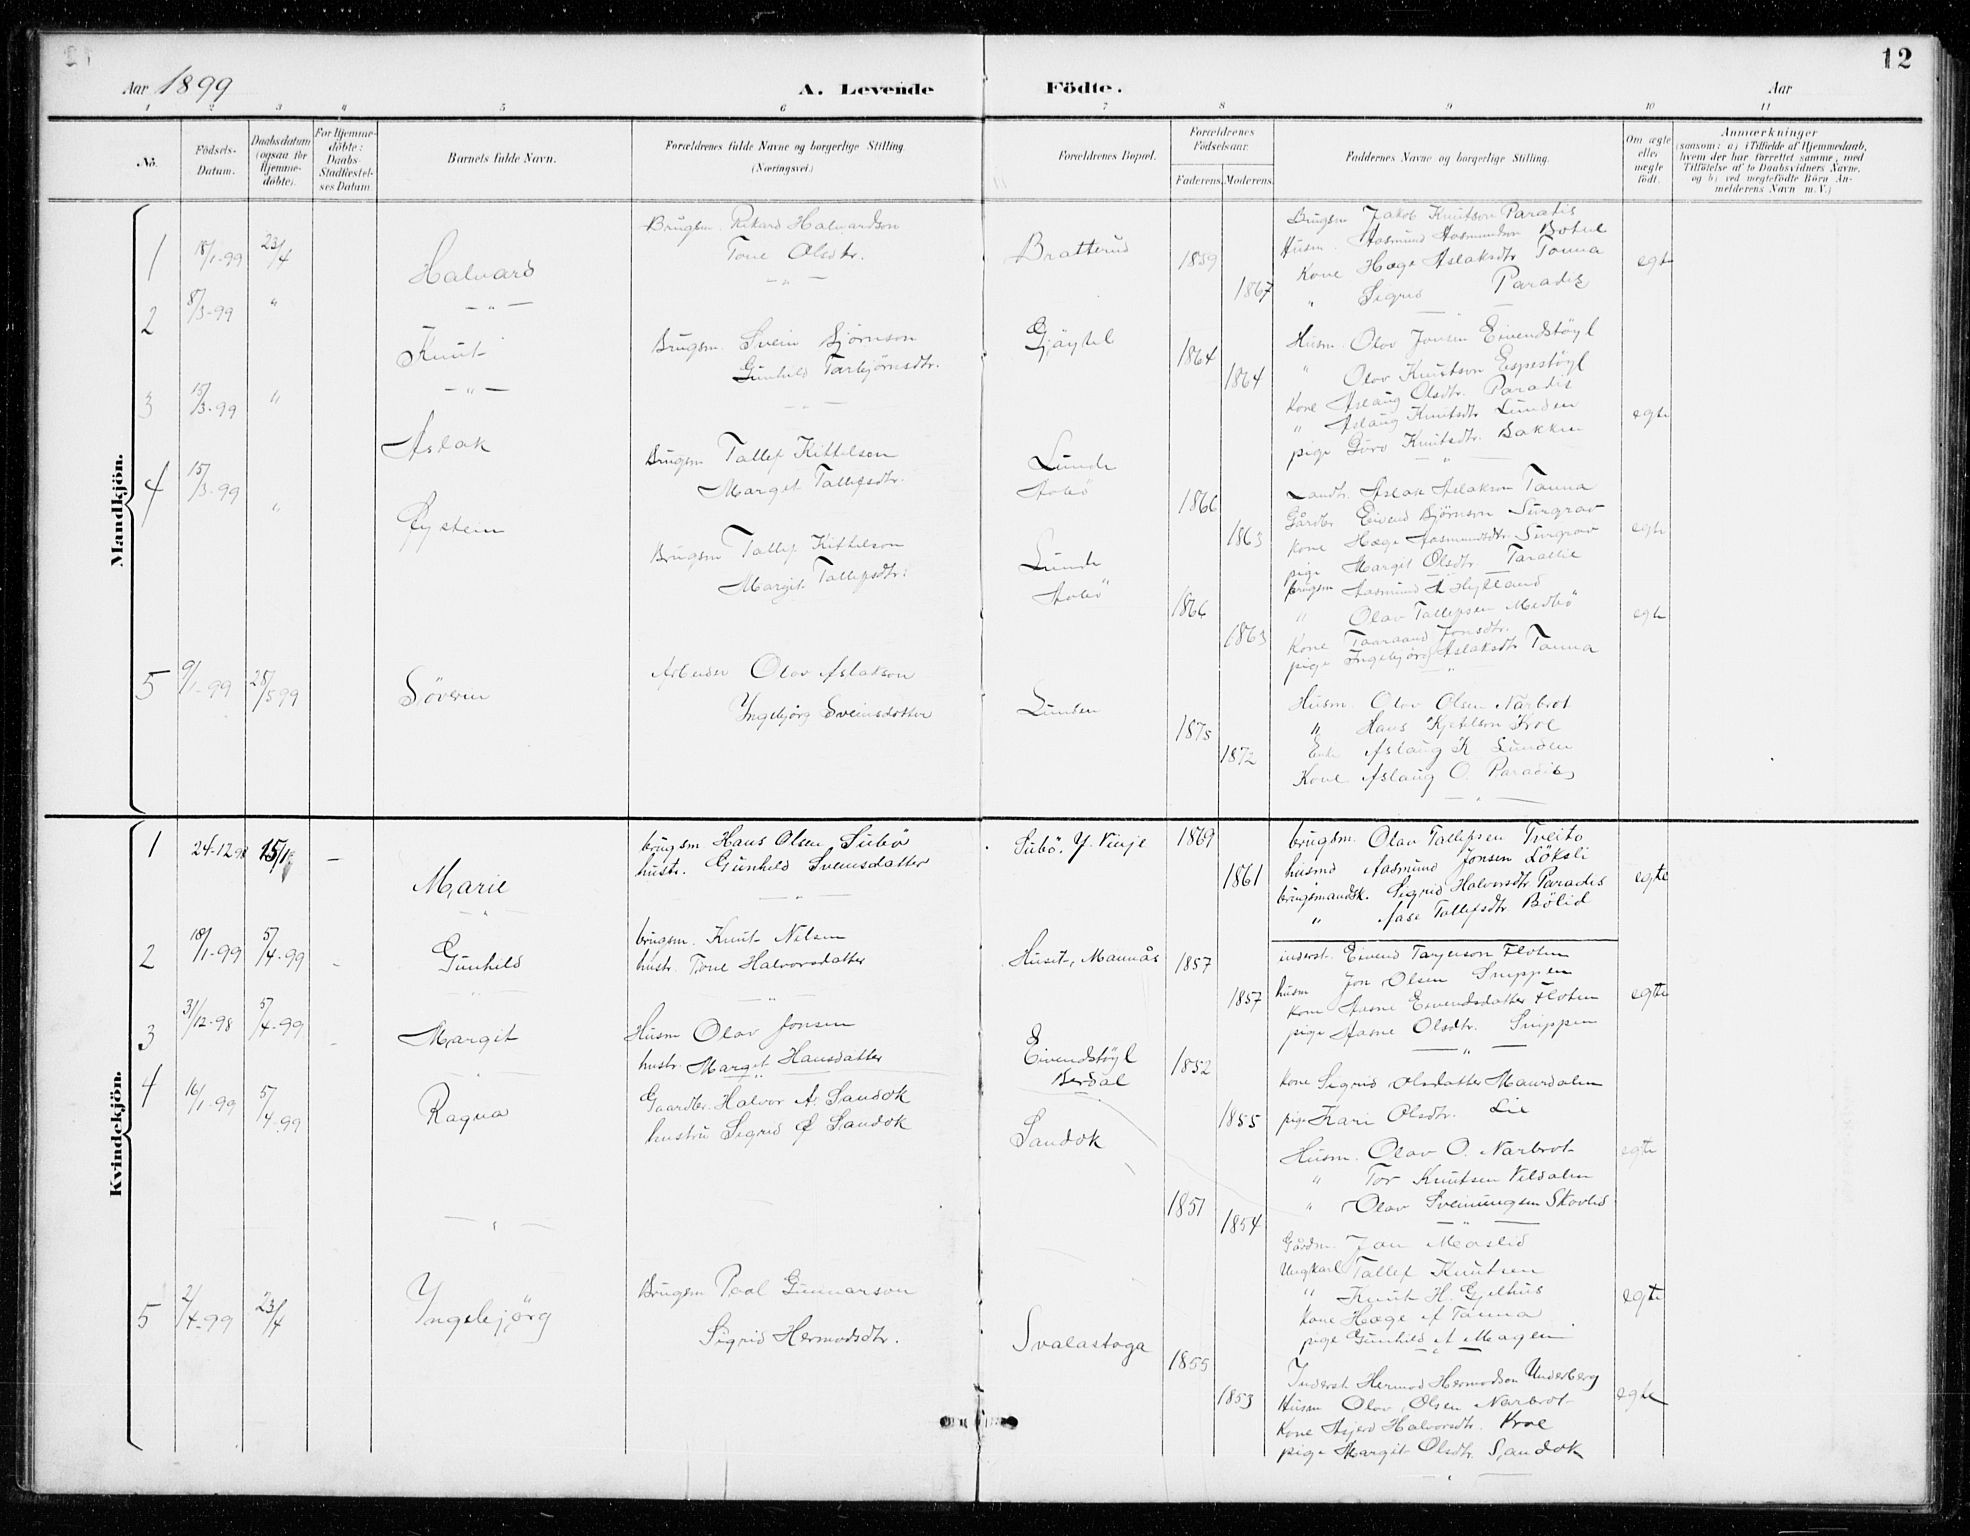 12
Aar 1899
A. Levende
Födte.
Aar
1 2 3 4 5 6 7 8 9 10 11
No.
Födsels-Datum.
Daabsdatum (ogsaa for Hjemme-döbte).
For Hjemme-döbte: Daabs-Stadfæstel-ses Datum
Barnets fulde Navn.
Forældrenes fulde Navne og borgerlige Stilling. (Næringsvei.)
Forældrenes Bopæl.
Forældrenes Födselsaar.
Faderens. Moderens.
Faddernes Navne og borgerlige Stilling.
Om ægte eller uægte födt.
Anmærkninger
(saasom: a) i Tilfælde af Hjemmedaab, hvem der har forrettet samme, med Tilföielse af to Daabsvidners Navne, og b) ved uægtefödte Börn An-melderens Navn m. V.)
Mandkjön.
1 18/1-99 23/4 Halvard
Brugsm. Rikard Halvardson
Tone Olsdtr.
Bratterud 1859 1867
Brugsm Jakob Knutson Paradis
Husm. Aasmund Aasmundson Botne
Kone Hæge Aslaksdtr Tonna
" Sigrid Paradis
egt
2 8/3-99 " Knut
Brugsm. Svein Bjørnson
Gunhild Tarbjørnsdtr.
Gjøytil 1864 1864
Husm. Olov Jonsen Eivendstøyl
" Olov Knutson Espestøyl
Kone Aslaug Olsdtr. Paradis
" Aslaug Knutsdtr Lunden
pige Guro Knutsdtr. Bakken
egte
3 15/3-99 " Aslak
Brugsm Tallef Kittelson
Margit Tallefsdtr.
Lunde
1866 1863
Landh. Aslak Aslakson Tonna
Gårdbr Eivend Bjørnson Surgrav
Kone Hæge Aasmundsdtr Surgrav
pige Margit Olsdtr.
egte
4 15/3-99 " Øystein
Brugsm Tallef Kittelson
Margit Tallefsdtr.
Lunde
1866 1863
brugsm Aasmund A Hylland
" Olav Tallefsen Medbö
Kone Taaraand Jonsdtr.
pige Ingebjørg Aslaksdtr Tonna
egte
5 9/1-99 28/5 99 Søveren
Arbeider Olov Aslakson
Yngebjørg Sveinsdotter
Lunden 1875 1872
Husm. Olov Olsen Narbrot
" Hans Kjetilson Kroe
Enke Aslaug K Lunden
Kone Aslaug O. Paradis
Kvindekjön.
1 24-12 98 15/1 - Marie
brugsm Hans Olsen Subø
hustr. Gunhild Sveinsdatter
Subö. Y. Vinje 1869 1861
brugsm. Olav Tallefsen Treito
husmd Aasmund Jonsen Löksli
brugsmandsk. Sigrid Halvorsdtr Paradis
" Aase Tallefsdtr Bölid
egte
2 18/1-99 5/4-99 - Gunhild
brugsm. Knut Nilsen
hustr. Tone Halvorsdatter
Huset, Mannås 1857 1857
inderst. Eivend Tarjeison Floten
husm Jon Olsen Snippen
kone Aasne Eivendsdatter Floten
pige Aasne Olsdtr. Snippen
egtte
3 31/12-98 5/4-99 - Margit
Husm Olav Jonsen
hustr. Margit Hansdatter
Eivendstøyl
Berdal 1852 1855
kone Sigrid Olsdatter Maurdalen
pige Kari Olsdtr. Lie
Husm. Olav O. Narbrot
" Tor Knutsen Vildalen
" Olav Sveinungsen Skovlid
egte
4 16/1-99 5/4-99 Ragna
Gaardbr. Halvor A. Sandok
hustru Sigrid Ø Sandok
Sandok 1851 1854
Gårdm. Jon Moslid
Ungkarl Tallef Knutsen
" Knut H. Gjelhus
Kone Hæge A Tonna
pige Gunhild A Magen
egte
5 2/4-99 23/4 Yngebjörg
Brugsm Paal Gunnarson
Sigrid Hermodsdtr.
Svalastoga 1855 1853
Inderst Hermod Hermodson Underberg
Husm Olov Olsen Narbrot
Kone Asjerd Halvorsdtr. Kroe
pige Margit Olsdtr. Sandok
egte